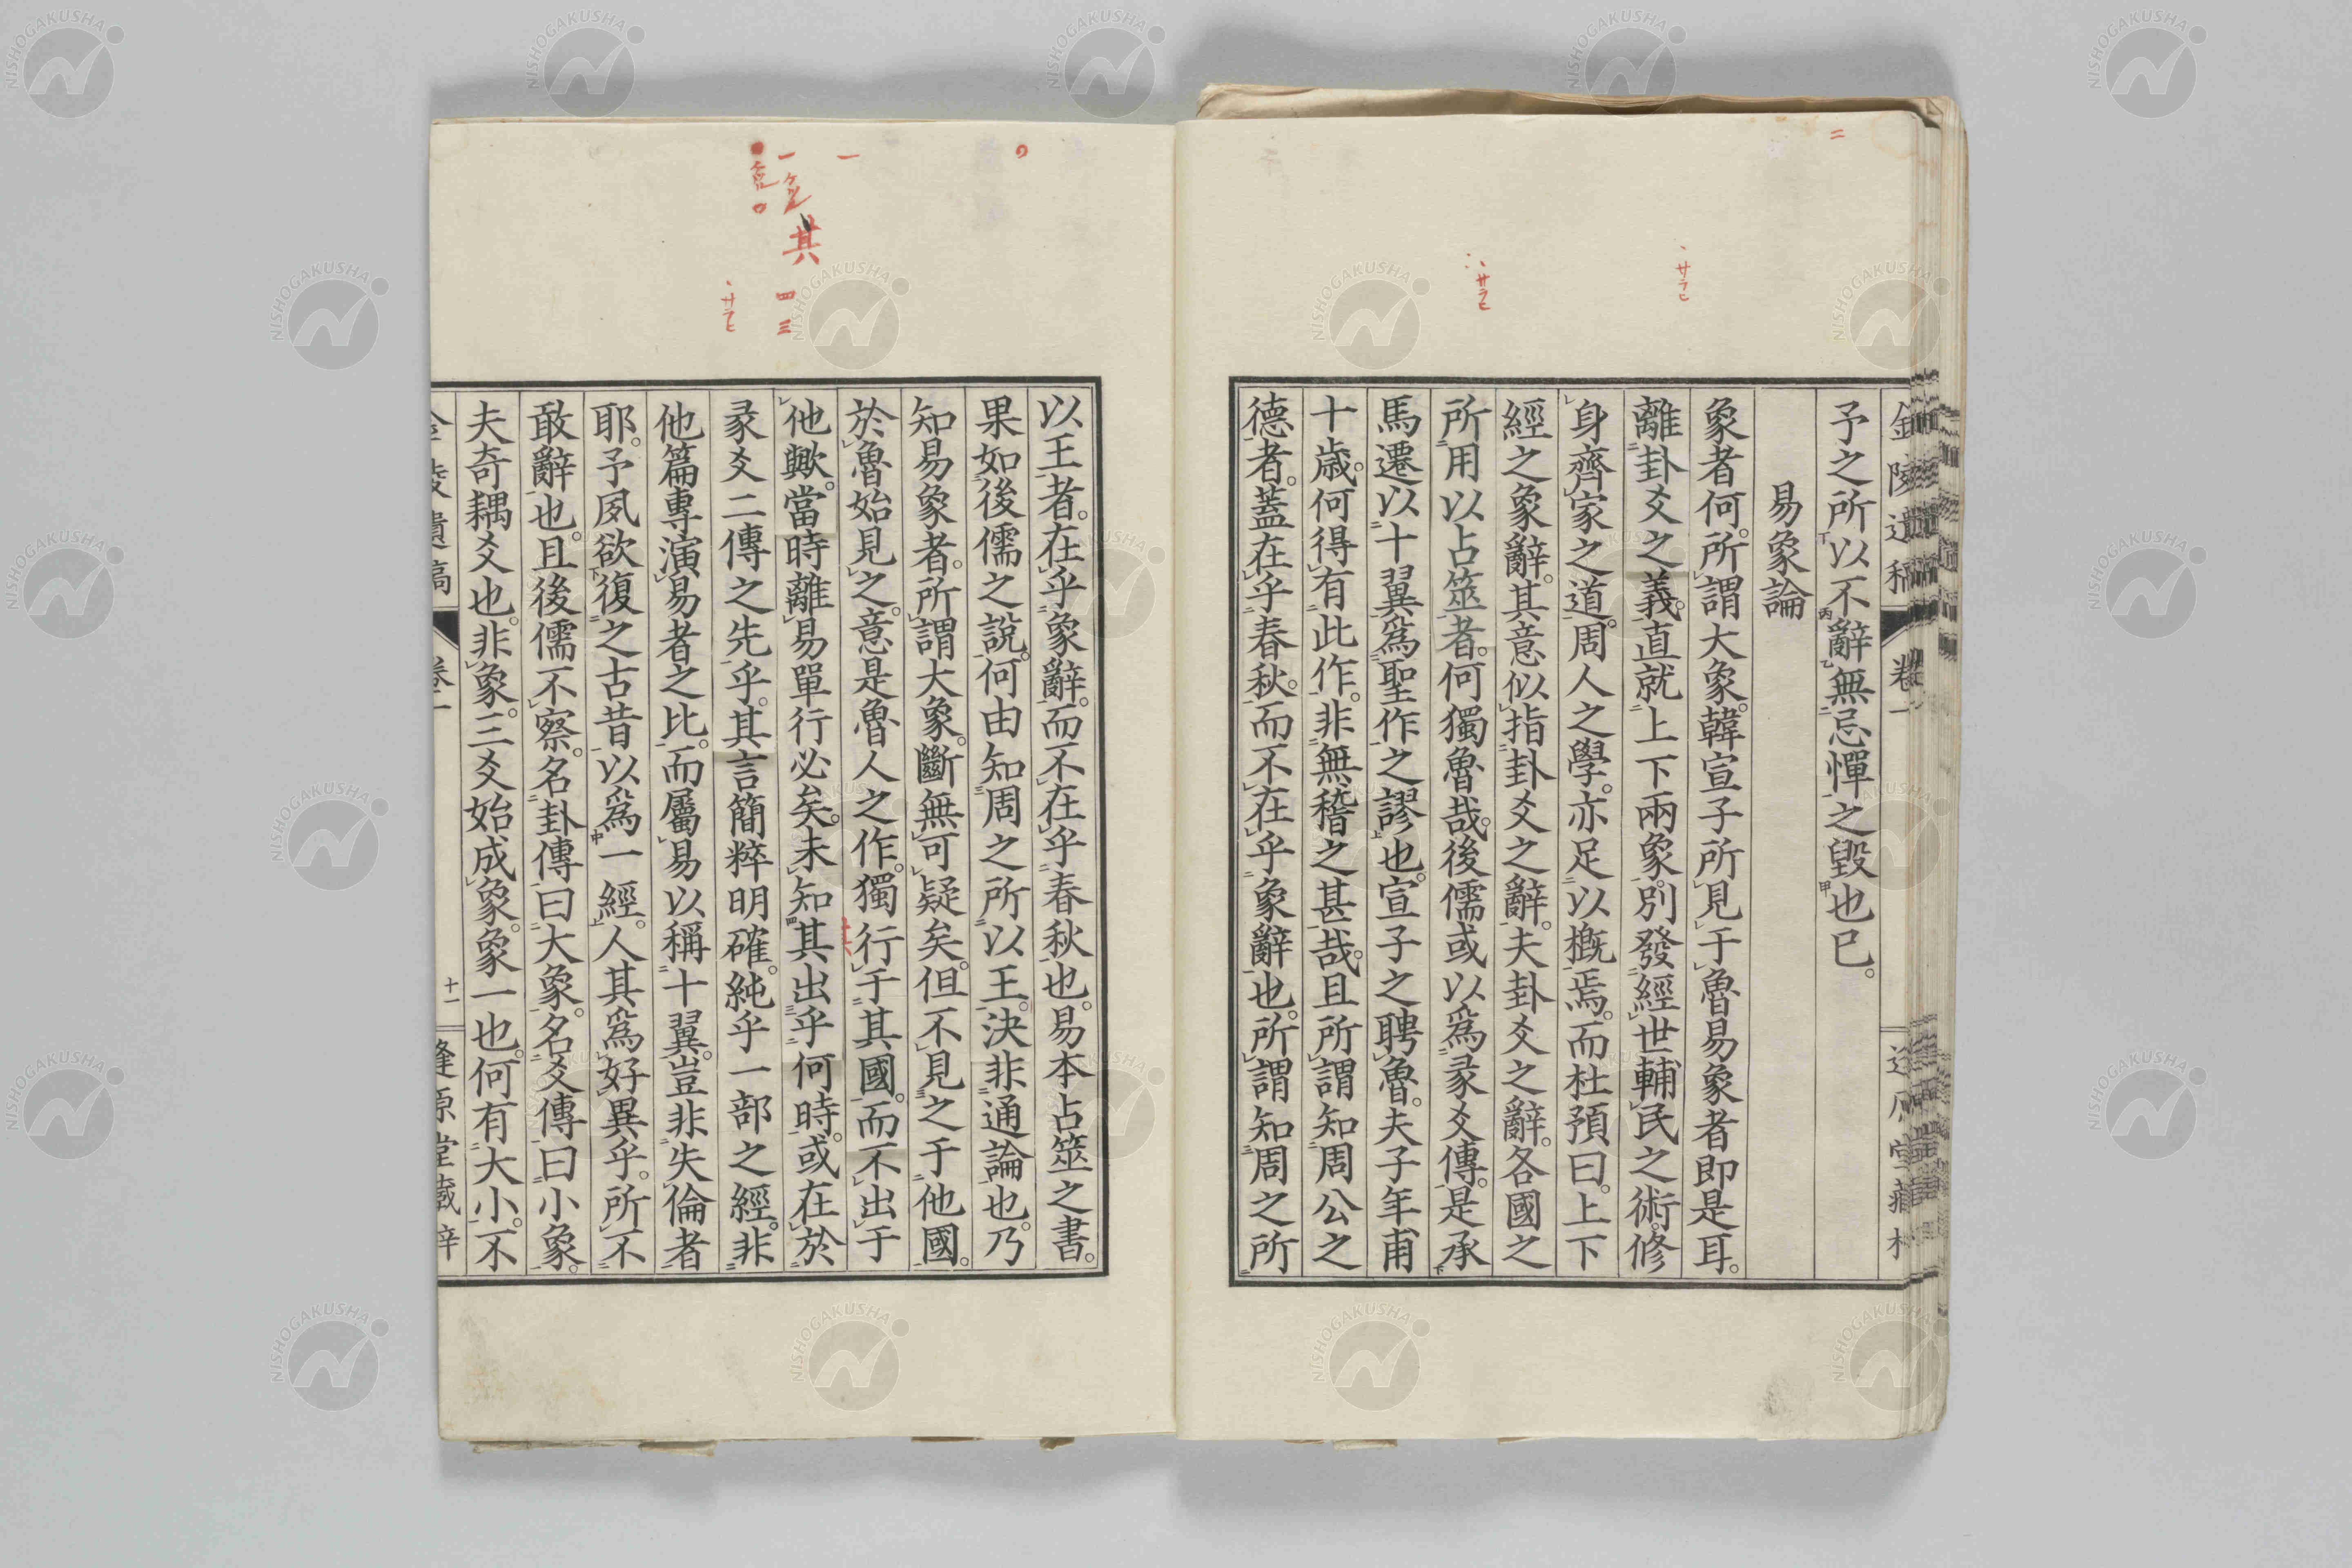 予之所以不辭無忌憚之毀也已。
易象論
象者何。所謂大象。韓宣子所見于魯易象者即是耳。
離卦爻之義。直就上下兩象。別發經世輔民之術。修
身齊家之道。周人之學。亦足以概焉。而杜預曰。上下
經之象辭。其意似指卦爻之辭。夫卦爻之辭。各國之
所用以占筮者。何獨魯哉。後儒或以爲彖爻傳。是承
馬遷以十翼爲聖作之謬也。宣子之聘魯。夫子年甫
十歲。何得有此作。非無稽之甚哉。且所謂知周公之
德者。蓋在乎春秋。而不在乎象辭也。所謂知周之所
以王者。在乎象辭。而不在乎春秋也。易本占筮之書。
果如後儒之說。何由知周之所以王。決非通論也。乃
知易象者。所謂大象。斷無可疑矣。但不見之于他國。
於魯始見之。意是魯人之作。獨行于其國。而不出于
他歟。當時離易單行必矣。未知其出乎何時。或在於
彖爻二傳之先乎。其言簡粹明確。純乎一部之經。非
他篇專演易者之比。而屬易以稱十翼。豈非失倫者
耶。予夙欲復之古昔以爲一經。人其爲好異乎。所不
敢辭也。且後儒不察。名卦傳曰大象。名爻傳曰小象。
夫奇耦爻也。非象。三爻始成象。象一也。何有大小。不
卷一
十一
NISHOGAKUSHA